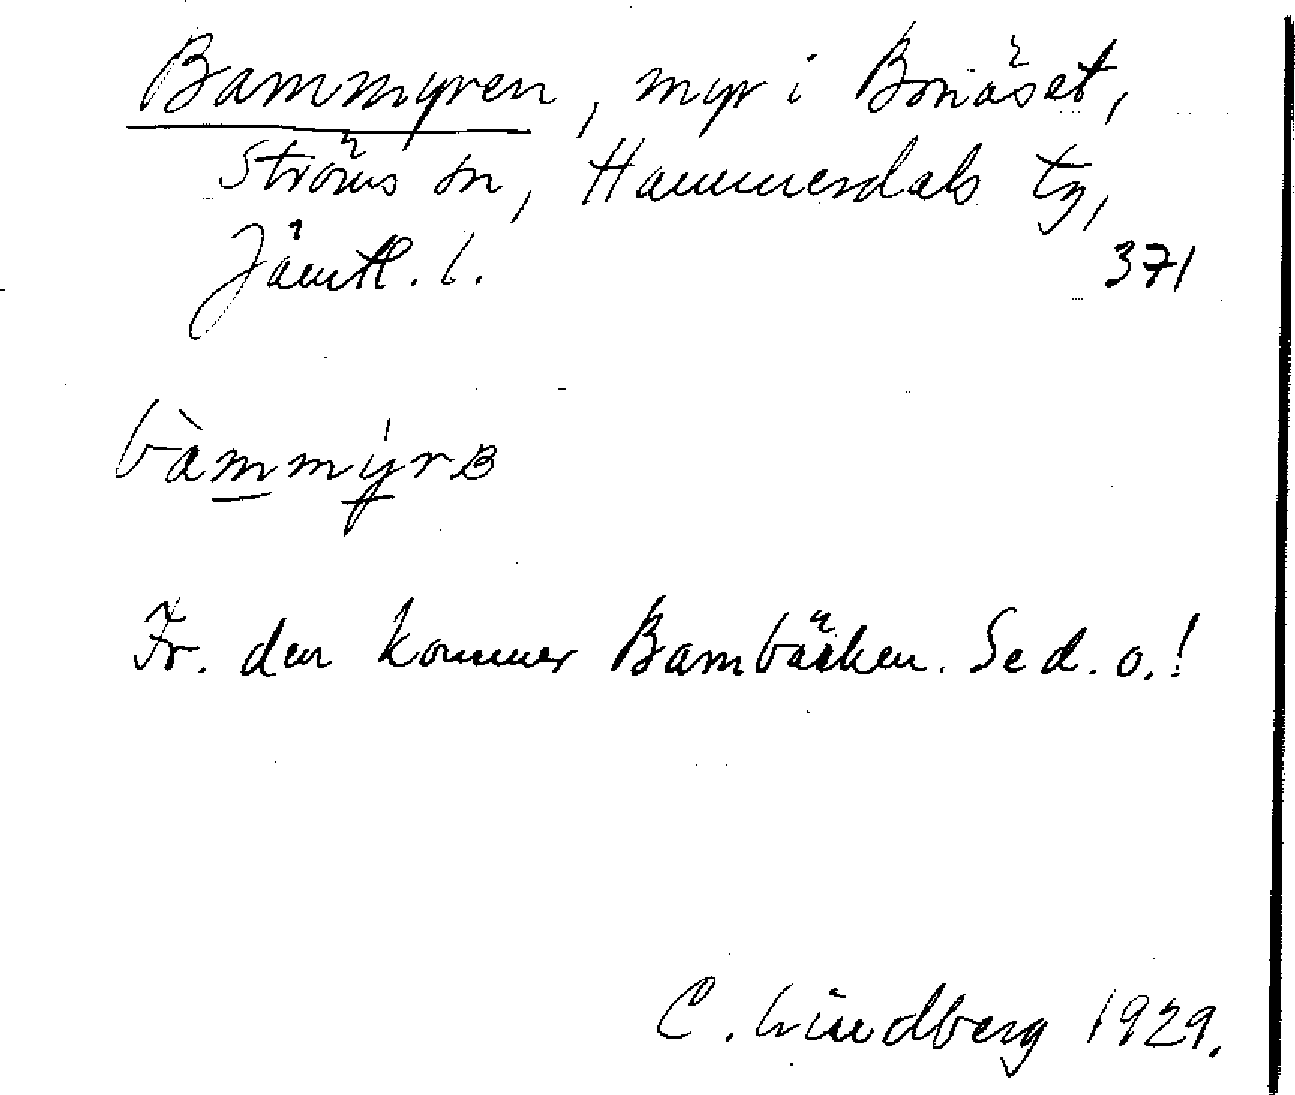 Bammyren, myr i Bonäset,
Ströms sn, Hammerdals tg,
Jämtl. l.
371
bàmmýrʙ
Fr. den kommer Bambäcken. Se d. o.!
C. Lindberg 1929.